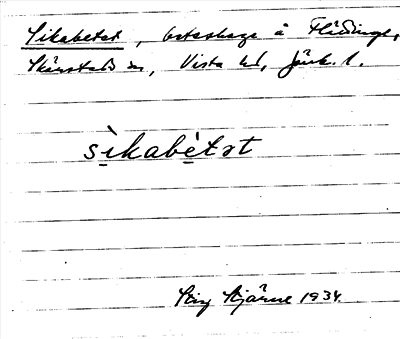 Sikabetet, beteshage å Flädinge,
Skärstads sn, Vista hd, Jönk. l.
sìkabètət
Stig Bjärme 1934.